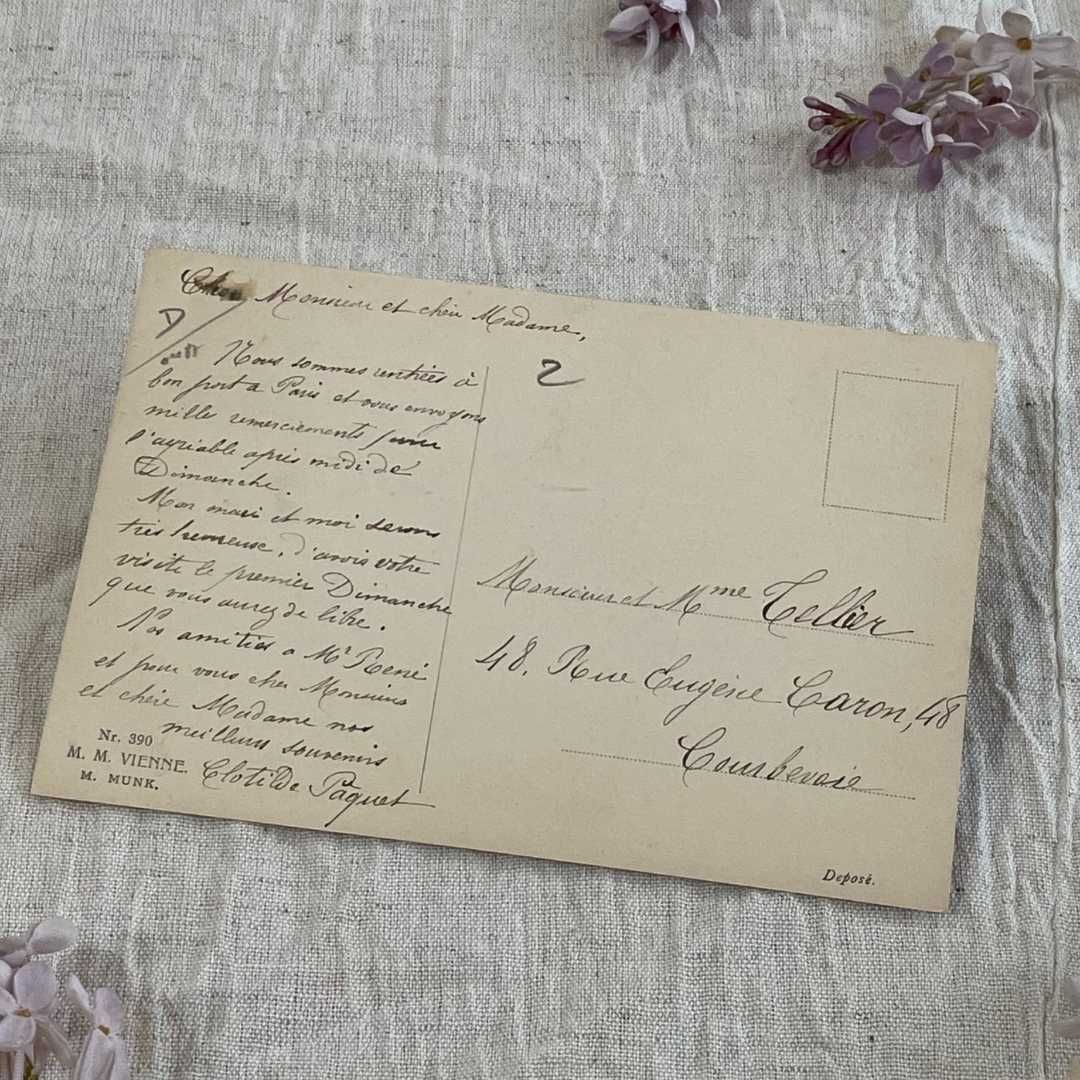 Cher Monsieur et chère Madame,
Nous sommes rentrées à
bon port a Paris et vous envoyons
mille remerciements pour
l'agréable après midi de
Dimanche.
Mon mari et moi serons
très heureuse, d'avoir votre
visite le premier Dimanche
que vous aurez de libre.
Nos amitiés a Mr René
et pour vous cher Monsieur
et chère Madame nos
meilleurs souvenirs
Clotilde Paquet
Nr. 390
M. M. VIENNE.
M. MUNK.
2
Monsieur et Mme Tellier
48. Rue Eugène Caron, 48
Courbevoie
Deposé.